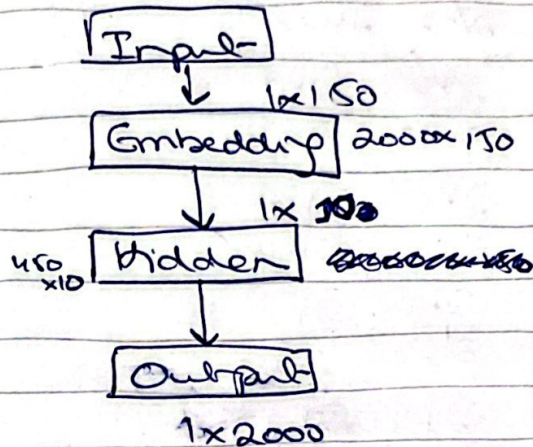 Input
1x150
Embedding 2000x150
1x
450 Hidden
x10
Output
1x2000